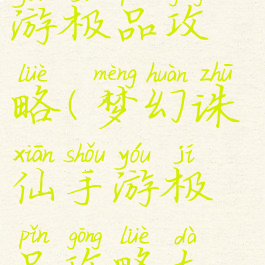 游极品攻
lüè mèng huàn zhū
略(梦幻诛
xiān shǒu yóu jí
仙手游极
pǐn gōng lüè dà
品攻略大